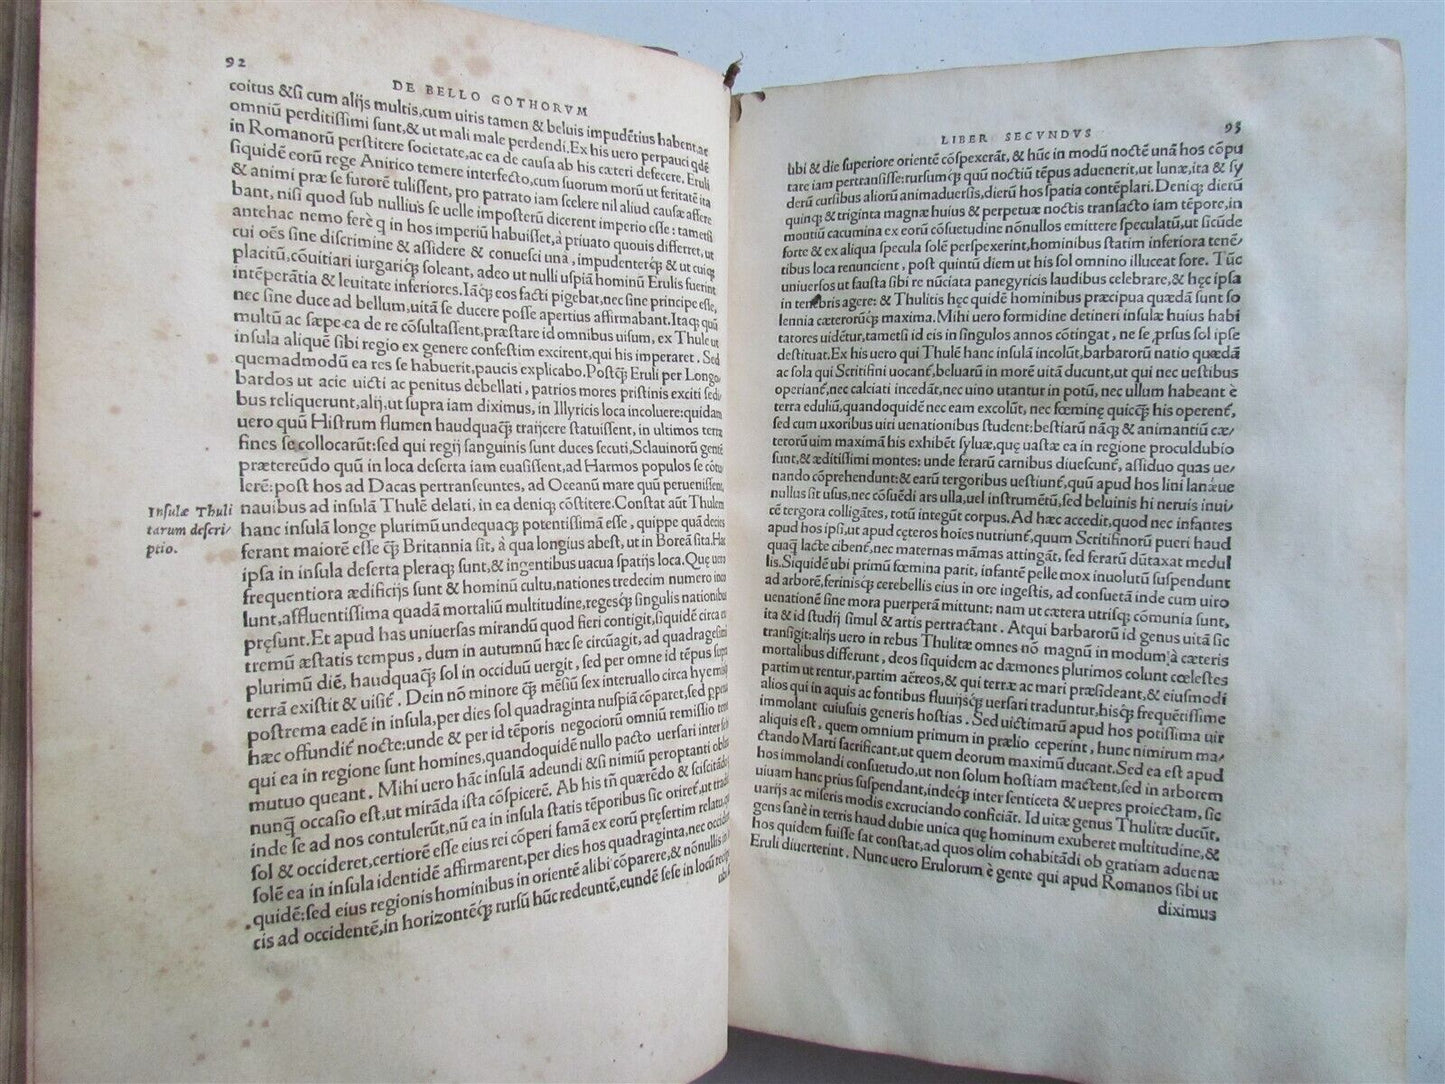 92
DE BELLO GOTHORVM
coitus &si cum alijs multis,cum uiris tamen & beluis impudẽtius habent,ac
omniũ perditissimi sunt,& ut mali male perdendi.Ex his uero perpauci qdẽ
in Romanorũ perstitere societate,ac ea de causa ab his cæteri defecere. Eruli
siquidẽ eorũ rege Anirico temere interfecto,cum suorum morũ ut feritatẽ ita
& animi præ se furorẽ tulissent, pro patrato iam scelere nil aliud causæ affere
bant, nisi quod sub nullius se uelle imposterũ dicerent imperio esse : tametsi
antehac nemo ferè q in hos imperiũ habuisset,à priuato quouis differret, ut
cui oẽs sine discrimine & assidere & conuesci una, impudenterq; & ut cuiq;
placitũ,cõuitiari iurgariq; soleant, adeo ut nulli uspiã hominũ Erulis fuerint
intẽperãtia & leuitate inferiores.Iãq; eos facti pigebat,nec sine principe esse,
nec sine duce ad bellum,uitã se ducere posse apertius affirmabant.Itaq; quũ
multũ ac sæpe ea de re cõsultassent,præstare id omnibus uisum, ex Thule ut
insula aliquẽ sibi regio ex genere confestim excirent,qui his imperaret . Sed
quemadmodũ ea res se habuerit,paucis explicabo. Postq; Eruli per Longo
bardos ut acie uicti ac penitus debellati , patrios mores pristinis exciti sedi
bus reliquerunt,alij,ut supra iam diximus, in Illyricis loca incoluere:quidam
uero quũ Histrum flumen haudquaq; traijcere statuissent, in ultimos terræ
fines se collocarũt:sed qui regij sanguinis sunt duces secuti,Sclauinorũ gentẽ
prætereũdo quũ in loca deserta iam euasissent,ad Harmos populos se cõtu
lerẽ: post hos ad Dacas pertranseuntes, ad Oceanũ mare quũ peruenissent,
Insulæ Thuli
tarum descri/
ptio.
nauibus ad insulã Thulẽ delati, in ea deniq; cõstitere. Constat aũt Thulem
hanc insulã longe plurimũ undequaq; potentissimã esse , quippe quã decies
ferant maiorẽ esse q; Britannia sit, à qua longius abest, ut in Boreã sita. Hac
ipsa in insula deserta pleraq; sunt,& ingentibus uacua spatijs loca. Quę uero
frequentiora ædificijs sunt & hominũ cultu,nationes tredecim numero inco
lunt,affluentissima quadã mortaliũ multitudine,regesq; singulis nationibus
pręsunt. Et apud has uniuersas mirandũ quod fieri contigit,siquidẽ circa ex
tremũ æstatis tempus, dum in autumnũ hæc se circũagit, ad quadragesimũ
plurimũ diẽ, haudquaq; sol in occiduũ uergit , sed per omne id tẽpus supra
terrã existit & uisit̃. Dein nõ minore q; mẽsiũ sex interuallo circa hyemis
postrema eadẽ in insula,per dies sol quadraginta nuspiã cõparet,sed ppetua
hæc offundit̃ nocte:unde & per id tẽporis negociorũ omniũ remissio tenet
qui ea in regione sunt homines,quandoquidẽ nullo pacto uersari inter se
mutuo queant . Mihi uero hãc insulã adeundi &si nimiũ peroptanti oblata
nunq̃ occasio est,ut mirãda ista cõspicerẽ. Ab his tñ quærẽdo & sciscitãdo
inde se ad nos contulerũt,nũ ea in insula statis tẽporibus sic oriret̃,ut tradũt
sol & occideret,certiorẽ esse eius rei cõperi famã ex eorũ pręsertim relatu,qui
solẽ ea in insula identidẽ affirmarent,per dies hos quadraginta,nec occidere
quidẽ:sed eius regionis hominibus in orientẽ alibi cõparere,& nõnullis in lo
cis ad occidentẽ,in horizontẽq; rursũ hũc redeuntẽ,eundẽ sese in locũ recipe
LIBER SECVNDVS
93
ubi & die superiore orientẽ cõspexerãt, & hũc in modũ noctẽ unã hos cõpu
tare iam pertransisse:rursumq; quũ noctiũ tẽpus aduenerit,ut lunæ,ita & sy
derũ cursibus aliorũ animaduersis,dierũ hos spatia contẽplari. Deniq; dierũ
quinq; & triginta magnæ huius & perpetuæ noctis transacto iam tẽpore,in
montiũ cacumina ex eorũ cõsuetudine nõnullos emittere speculatũ,ut sicũde
forte & ex aliqua specula solẽ perspexerint,hominibus statim inferiora tenẽ/
tibus loca renuncient , post quintũ diem ut his sol omnino illuceat fore. Tũc
uniuersos ut fausta sibi re nũciata panegyricis laudibus celebrare,& hęc ipsa
in tenebris agere: & Thulitis hęc quidẽ hominibus præcipua quædã sunt so
lennia cæterorũq; maxima. Mihi uero formidine detineri insulæ huius habi
tatores uidẽtur,tametsi id eis in singulos annos cõtingat, ne se prsus sol ipse
destituat.Ex his uero qui Thulẽ hanc insulã incolũt,barbarorũ natio quædã
ac sola qui Scritifini uocant̃,beluarũ in morẽ uitã ducunt,ut qui nec uestibus
operiant̃,nec calciati incedãt,nec uino utantur in potũ, nec ullum habeant è
terra edulium,quandoquidẽ nec eam excolũt, nec fœminę quicq; his operent̃,
sed cum uxoribus uiri uenationibus student: bestiarũ nãq; & animantiũ cæ/
terorũ uim maximã his exhibẽt syluæ,quę uastæ ea in regione proculdubio
sunt,& æditissimi montes: unde ferarũ carnibus diuescunt̃, assiduo quas ue/
nando cõprehendunt:& earũ tergoribus uestiunt̃, quũ apud hos lini lanæue
nullus sit usus,nec cõsuẽdi ars ulla,uel instrumẽtũ,sed beluinis hi neruis inui/
cẽ tergora colligãtes, totũ integũt corpus. Ad hæc accedit,quod nec infantes
apud hos ipsi,ut apud cęteros hoies nutriunt̃,quum Scritifinorũ pueri haud
quaq̃ lacte cibent̃,nec maternas mãmas attingãt, sed ferarũ dũtaxat medul
lis.Siquidẽ ubi primũ fœmina parit, infantẽ pelle mox inuolutũ suspendunt
ad arborẽ,ferinisq; cerebellis eius in ore ingestis, ad consuetã inde cum uiro
uenationẽ sine mora puerperã mittunt: nam ut cætera utrisq; cõmunia sunt,
ita & id studij simul & artis pertractant . Atqui barbarorũ id genus uitã sic
transigit:alijs uero in rebus Thulitæ omnes nõ magnũ in modum à cæteris
mortalibus differunt , deos siquidem ac dæmones plurimos colunt cœlestes
partim ut rentur,partim aëreos,& qui terræ ac mari præsideant,& eiusmodi
alios qui in aquis ac fontibus fluuijsq; uersari traduntur,hisq; frequẽtissime
immolant cuiusuis generis hostias . Sed uictimarũ apud hos potissima uir
aliquis est , quem omnium primum in prælio ceperint , hunc nimirum ma/
ctando Marti sacrificant,ut quem deorum maximũ ducant.Sed ea est apud
hos immolandi consuetudo,ut non solum hostiam mactent,sed in arborem
uiuam hanc prius suspendant,indeq; inter senticeta & uepres proiectam, sic
uarijs ac miseris modis excruciando conficiãt. Id uitæ genus Thulitæ ducũt,
gens sanè in terris haud dubie unica quę hominum exuberet multitudine, &
hos quidem fuisse sat constat,ad quos olim cohabitãdi ob gratiam aduenæ
Eruli diuerterint . Nunc uero Erulorum è gente qui apud Romanos sibi ut
diximus